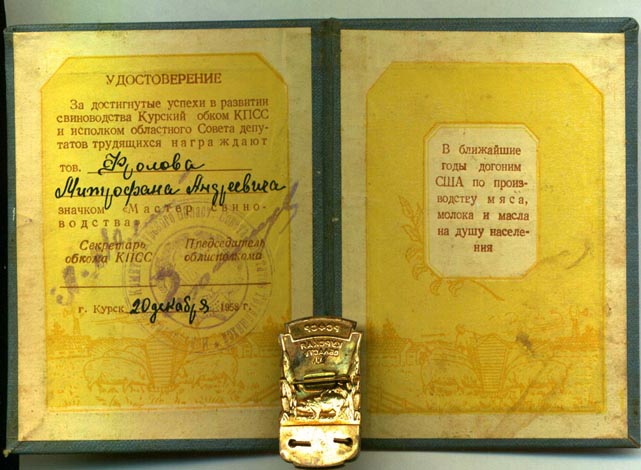 УДОСТОВЕРЕНИЕ
За достигнутые успехи в развитии
свиноводства Курский обком КПСС
и исполком областного Совета депу-
татов трудящихся награждают
тов. Фролова
Митрофана Андреевича
значком "Мастер свино-
водства"
Секретарь Председатель
обкома КПСС облисполкома
г. Курск 20 декабря 1958 г.
В ближайшие
годы догоним
США по произ-
водству мяса,
молока и масла
на душу населе-
ния